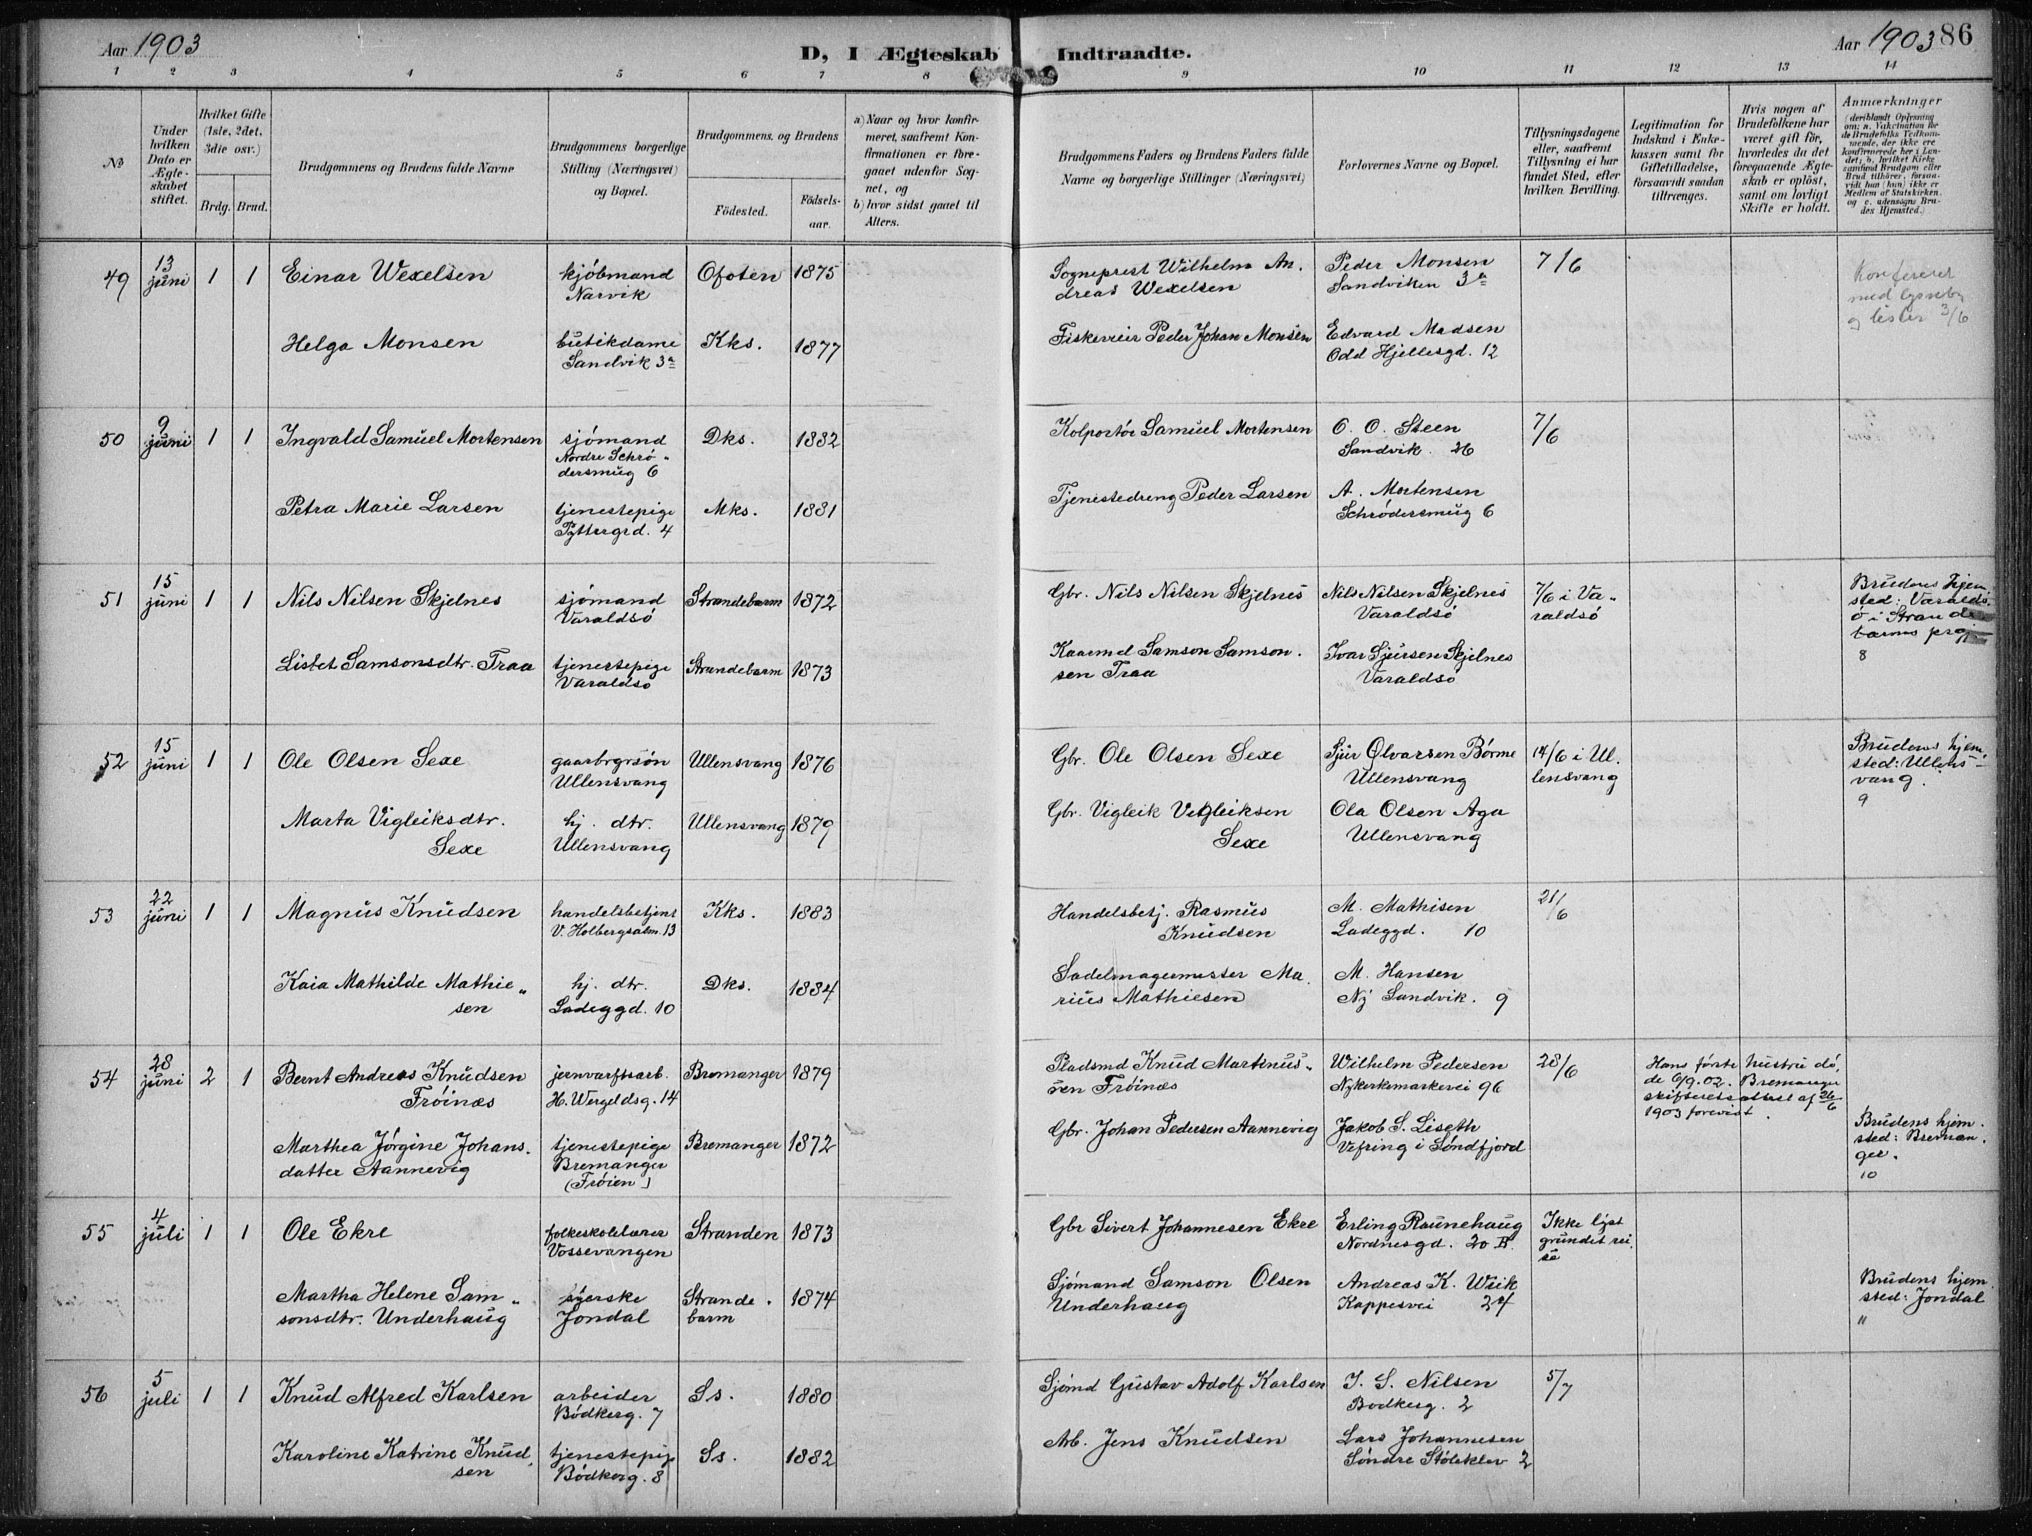 Aar 1903
D, I Ægteskab Indtraadte.
Aar 1903 86
1 2 3 4 5 6 7 8 9 10 11 12 13 14
№
Under hvilken Dato er Ægteskabet stiftet.
Hvilket Gifte (1ste, 2det, 3die osv.)
Brdg. Brud.
Brudgommens og Brudens fulde Navne
Brudgommens borgerlige Stilling (Næringsvei) og Bopæl.
Brudgommens og Brudens
Födested.
Födselsaar.
a) Naar og hvor konfirmeret, saafremt Konfirmationen er foregaaet udenfor Sognet, og
b) hvor sidst gaaet til Alters.
Brudgommens Faders og Brudens Faders fulde Navne og borgerlige Stillinger (Næringsvei)
Forlovernes Navne og Bopæl.
Tillysningsdagene eller, saafremt Tillysning ei har fundet Sted, efter hvilken Bevilling.
Legitimation for Indskud i Enkekassen samt for Giftetilladelse, forsaavidt saadan tiltrænges.
Hvis nogen af Brudefolkene har været gift för, hvorledes da det foregaaende Ægteskab er oplöst, samt om lovligt Skifte er holdt.
Anmærkninger (deriblandt Oplysning om: a. Vakcination for de Brudefolks Vedkommende, der ikke ere konfirmerede her i Landet; b. hvilket Kirkesamfund Brudgom eller Brud tilhörer, forsaavidt han (hun) ikke er Medlem af Statskirken, og c. udensogns Brudes Hjemsted.)
49 13 juni 1 1 Einar Wexelsen kjøbmand Narvik Ofoten 1875 Sogneprest Wilhelm Andreas Wexelsen Peder Monsen Sandviken 3a 7/6
Konfererer med lysseb. og lister 3/6
Helga Monsen butikdame Sandvik 3a Kks. 1877 Fiskeveier Peder Johan Monsen Edvard Madsen Odd Hjeltesgd. 12
50 9 juni 1 1 Ingvald Samuel Mortensen sjømand Nordre Schrødersmug 6 Dks. 1882 Kolportør Samuel Mortensen O. O. Steen Sandvik. 26 7/6
Petra Marie Larsen tjenestepige Pyttergrd. 4 Mks. 1881 Tjenestedreng Peder Larsen A. Mortensen Schrødersmug 6
51 15 juni 1 1 Nils Nilsen Skjelnes sjømand Varaldsø Strandebarm 1872 Gbr. Nils Nilsen Skjelnes Nils Nilsen Skjelnes Varaldsø 7/6 i Varaldsø
Brudens hjemsted: Varaldsø i Strandebarms prgj. 8
Lisbet Samsonsdtr. Traa tjenestepige Varaldsø Strandebarm 1873 Kaarmd Samson Samsonsen Traa Ivar Sjursen Skjelnes Varaldsø
52 15 juni 1 1 Ole Olsen Sexe gaarbrgrsøn Ullensvang Ullensvang 1876 Gbr. Ole Olsen Sexe Sjur Olvarsen Børme Ullensvang 14/6 i Ullensvang
Brudens hjemsted: Ullensvang. 9
Marta Vigleiksdtr. Sexe hj. dtr. Ullensvang Ullensvang 1879 Gbr. Vigleik Vigleiksen Sexe Ola Olsen Aga Ullensvang
53 22 juni 1 1 Magnus Knudsen handelsbetjent V. Holbergsalm. 13 Kks. 1883 Handelsbetj. Rasmus Knudsen M. Mathisen Ladeggd. 10 21/6
Kaia Mathilde Mathiesen hj. dtr. Ladeggd. 10 Dks. 1884 Sadelmagermester Marius Mathiesen M. Hansen Ny Sandvik. 9
54 28 juni 2 1 Bernt Andreas Knudsen Frøinæs jernvarftsarb. H. Wergeldsg. 14 Bremanger 1879 Pladsmd Knud Martinussen Frøinæs Wilhelm Pedersen Nykirkemarkevei 96 28/6
Hans første hustru døde 6/9.02. Bremanger skifteretsattest af 26/6 1903 forevist.
Marthea Jørgine Johansdatter Aannevig tjenestepige Bremanger (Frøien) Bremanger 1872 Gbr. Johan Pedersen Aannevig Jakob S. Liseth Vefring i Søndfjord
Brudens hjemsted: Bremanger. 10
55 4 juli 1 1 Ole Ekre folkeskolelærer Vossevangen Stranden 1873 Gbr Sivert Johannesen Ekre Erling Raunehaug Nordnesgd. 20 B. Ikke lyst grundet reise
Martha Helene Samsonsdtr. Underhaug syerske Jondal Strandebarm 1874 Sjømand Samson Olsen Underhaug Andreas K. Wiik Kappesvei 24
Brudens hjemsted: Jondal 11
56 5 juli 1 1 Knud Alfred Karlsen arbeider Bødkerg. 7 Ss. 1880 Sjømd Gustav Adolf Karlsen I. S. Nilsen Bødkerg. 2 5/7
Karoline Katrine Knudsen tjenestepige Bødkerg. 8 Ss. 1882 Arb. Jens Knudsen Lars Johannesen Søndre Støleklev 2